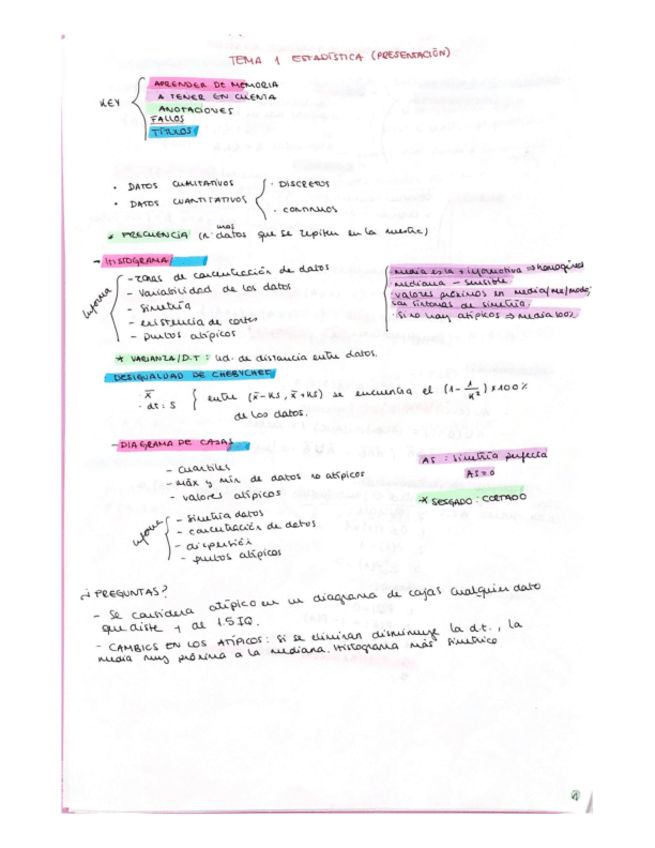 TEMA 1 ESTADÍSTICA (PRESENTACIÓN)
KEY
APRENDER DE MEMORIA
A TENER EN CUENTA
ANOTACIONES
FALLOS
TÍTULOS
· DATOS CUALITATIVOS
· DATOS CUANTITATIVOS
· DISCRETOS
· CONTINUOS
* FRECUENCIA (nº datos que se repiten en la muestra)
- HISTOGRAMA
Informa
- zonas de concentración de datos
- Variabilidad de los datos
- Simetría
- existencia de cortes
- puntos atípicos
· media es la + informativa ⇒ homogénea
· mediana - sensible
· valores próximos en media/me/moda
son síntomas de simetría.
· Si no hay atípicos ⇒ media 100%
* VARIANZA/D.T : ud. de distancia entre datos.
DESIGUALDAD DE CHEBYCHEF
· x̄
· dt: S
entre (x̄-KS, x̄+KS) se encuentra el (1-1/K²)×100%
de los datos.
- DIAGRAMA DE CAJAS
- cuartiles
- máx y mín de datos no atípicos
- valores atípicos
AS : Simetría perfecta
AS=0
* SESGADO: CORTADO
informa
- simetría datos
- concentración de datos
- dispersión
- puntos atípicos
¿PREGUNTAS?
- Se considera atípico en un diagrama de cajas cualquier dato
que diste + de 1.5IQ.
- CAMBIOS EN LOS ATÍPICOS: Si se eliminan disminuye la d.t., la
media muy próxima a la mediana. Histograma más simétrico